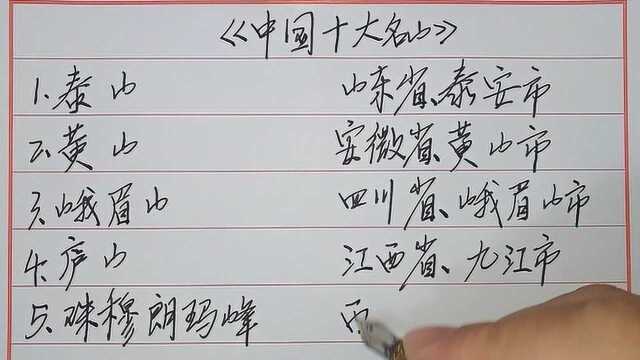 《中国十大名山》
1、泰山 山东省、泰安市
2、黄山 安徽省、黄山市
3、峨眉山 四川省、峨眉山市
4、庐山 江西省、九江市
5、珠穆朗玛峰 西